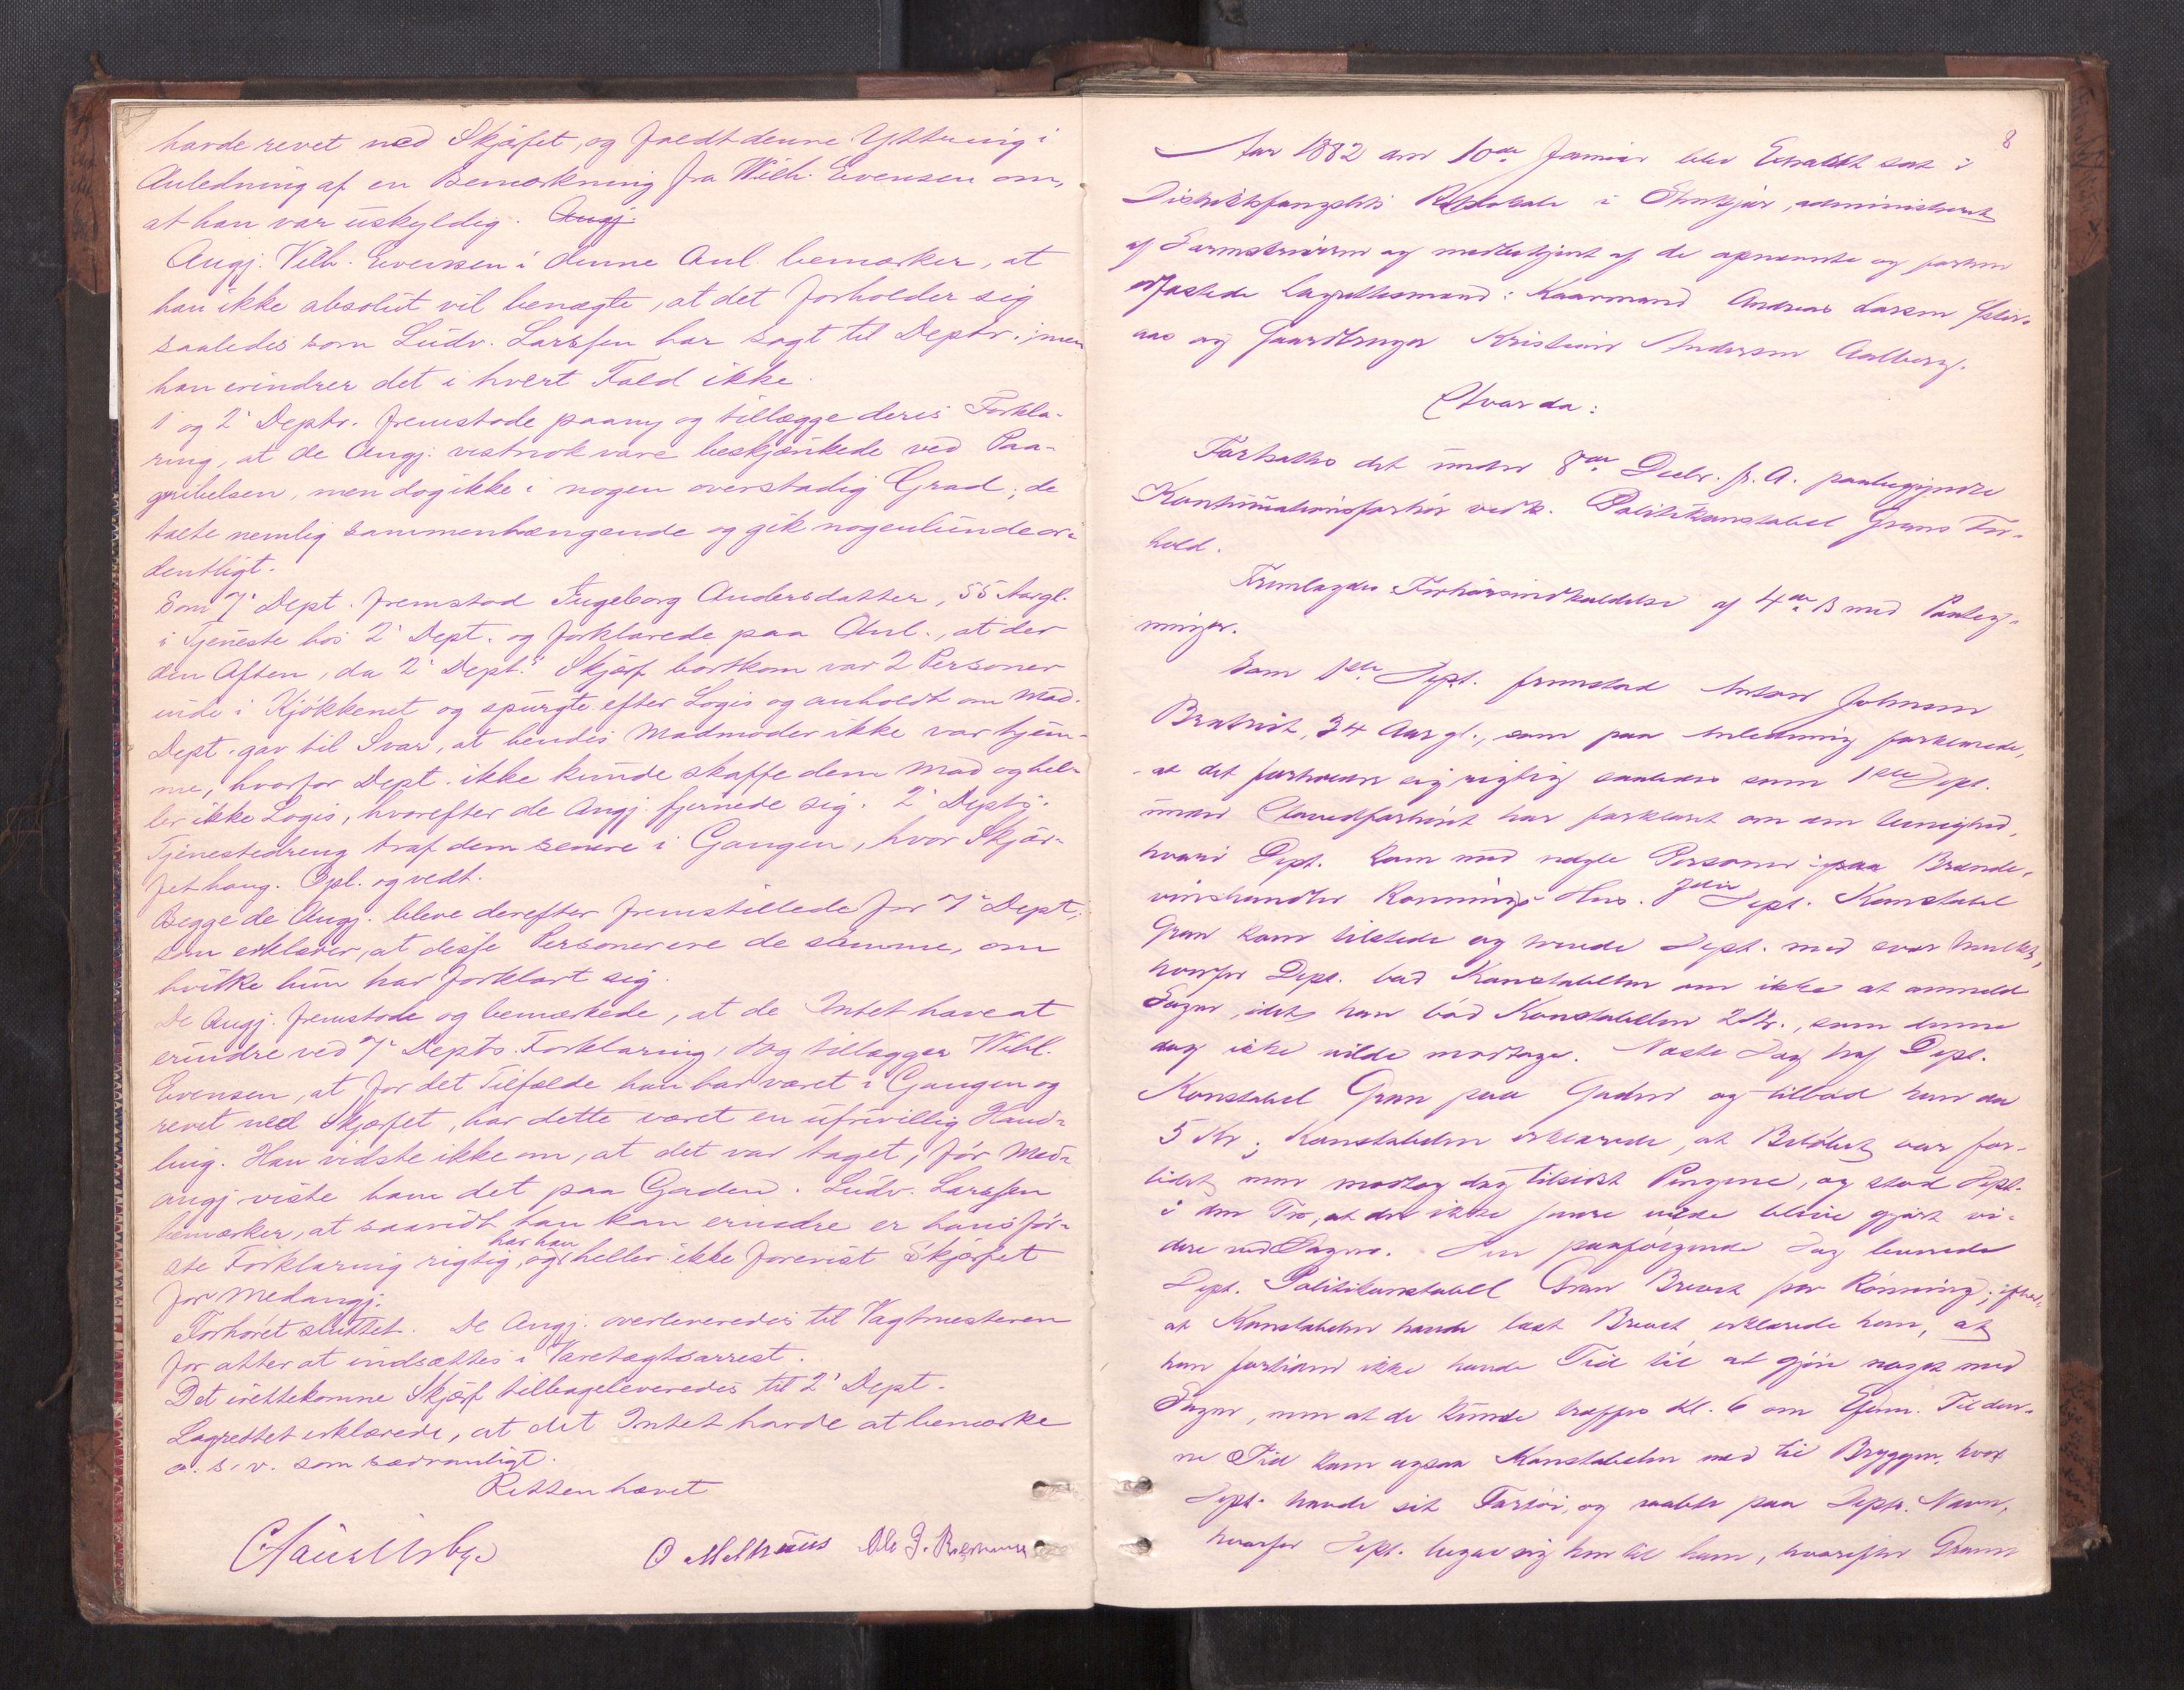 havde revet ned Skjæfet, og faldt denne Yttring i
Anledning af en Bemærkning fra Wilh. Evensen om,
at han var uskyldig. Angj.
Angj. Vilh. Evensen i denne Anl. bemærker, at
han ikke absolut vil benægte, at det forholder sig
saaledes som Ludv. Larssen har sagt til Deptr.; men
han erindrer det i hvert Fald ikke.
1' og 2' Deptr. fremstode paany og tillægge deres Forkla-
ring, at de Angj. vistnok vare beskjænkede ved Paa-
gribelsen, men dog ikke i nogen overstadig Grad; de
talte nemlig sammenhængende og gik nogenlunde or-
dentligt.
Som 7' Dept. fremstod Ingeborg Andersdatter, 55 Aar gl.
i Tjeneste hos 2' Dept. og forklarede paa Anl., at der
den Aften, da 2' Dept.s Skjærf bortkom var 2 Personer
inde i Kjøkkenet og spurgte efter Logis og anholdt om Mad.
Dept. gav til Svar, at hendes Madmoder ikke var hjem-
me, hvorfor Dept. ikke kunde skaffe dem Mad og hel-
ler ikke Logis, hvorefter de Angj. fjernede sig. 2' Depts.
Tjenestedreng traf dem senere i Gangen, hvor Skjær-
fet hang. Opl. og vedt.
Begge de Angj. bleve derefter fremstillede for 7' Dept.,
som erklærer, at disse Personer ere de samme, om
hvilke hun har forklart sig.
De Angj. fremstode og bemærkede, at de Intet have at
erindre ved 7' Depts. Forklaring, dog tillægger Vilh.
Evensen, at for det Tilfælde han har været i Gangen og
revet ned Skjærfet, har dette været en ufrivillig Hand-
ling. Han vidste ikke om, at det var taget, før Med-
angj. viste ham det paa Gaden. Ludv. Larssen
bemærker, at saavidt han kan erindre er hans før-
ste Forklaring rigtig, og har han heller ikke forevist Skjærfet
for Medangj.
Forhøret sluttet. De Angj. overleveredes til Vagtmesteren
for atter at indsættes i Varetægtsarrest.
Det irettekomne Skjærf tilbageleveredes til 2' Dept.
Lagrettet erklærede, at det Intet havde at bemærke
o. s. v. som sædvanligt.
Retten hævet
O Melhuus Ole J.
8
Aar 1882 den 10de Januar blev Extraret sat i
Distriktsfængslets Retslokale i Stenkjær, administreret
af Sorenskriveren og medbetjent af de opnævnte og forhen
edfæstede Lagrettesmænd: Kaarmand Andreas Larsen
aas og Gaardbruger Kristian Andersen Aalberg.
Hvorda:
Fortsattes det under 8de Decbr. f. A. paabegyndte
Kontinuationsforhør vedk. Politikonstabel Grans For-
hold.
Fremlagdes Forhørsindkaldelse af 4de ds med Paateg-
ninger.
Som 1ste Dept. fremstod Anton Johnsen
Bratreit, 34 Aar gl., som paa Anledning forklarede,
at det forholder sig rigtig saaledes som 1ste Dept.
under Hovedforhøret har forklaret om den Uenighed,
hvori Dept. kom med nogle Personer i paa Brænde-
vinshandler Rønnings Hus. Dept. Konstabel
Gran kom tilstede og truede Dept. med svær Mulkt,
hvorfor Dept. bad Konstabelen om ikke at anmelde
Sagen, idet han bød Konstabelen 2 Kr., som denne
dog ikke vilde modtage. Næste Dag traf Dept.
Konstabel Gran paa Gaden og tilbød ham da
5 Kr; Konstabelen erklærede, at Beløbet var for-
lidet, men modtog dog tilsidst Pengene, og stod Dept.
i den Tro, at der ikke da vilde blive gjort vi-
dere ved Sagen. Den paafølgende Dag leverede
Dept. Politikonstabel Gran Brevet fra Rønning;
at Konstabelen havde læst Brevet erklærede han, at
han fortiden ikke havde Tid til at gjøre noget med
Sagen, men at de kunde træffes Kl. 6 om Efterm. Til den-
ne Tid kom ogsaa Konstabelen ned til Bryggen, hvor
Dept. havde sit Fartøi, og raabte paa Depts. Navn,
hvorfor Dept. begav sig hen til ham, hvorefter Gran